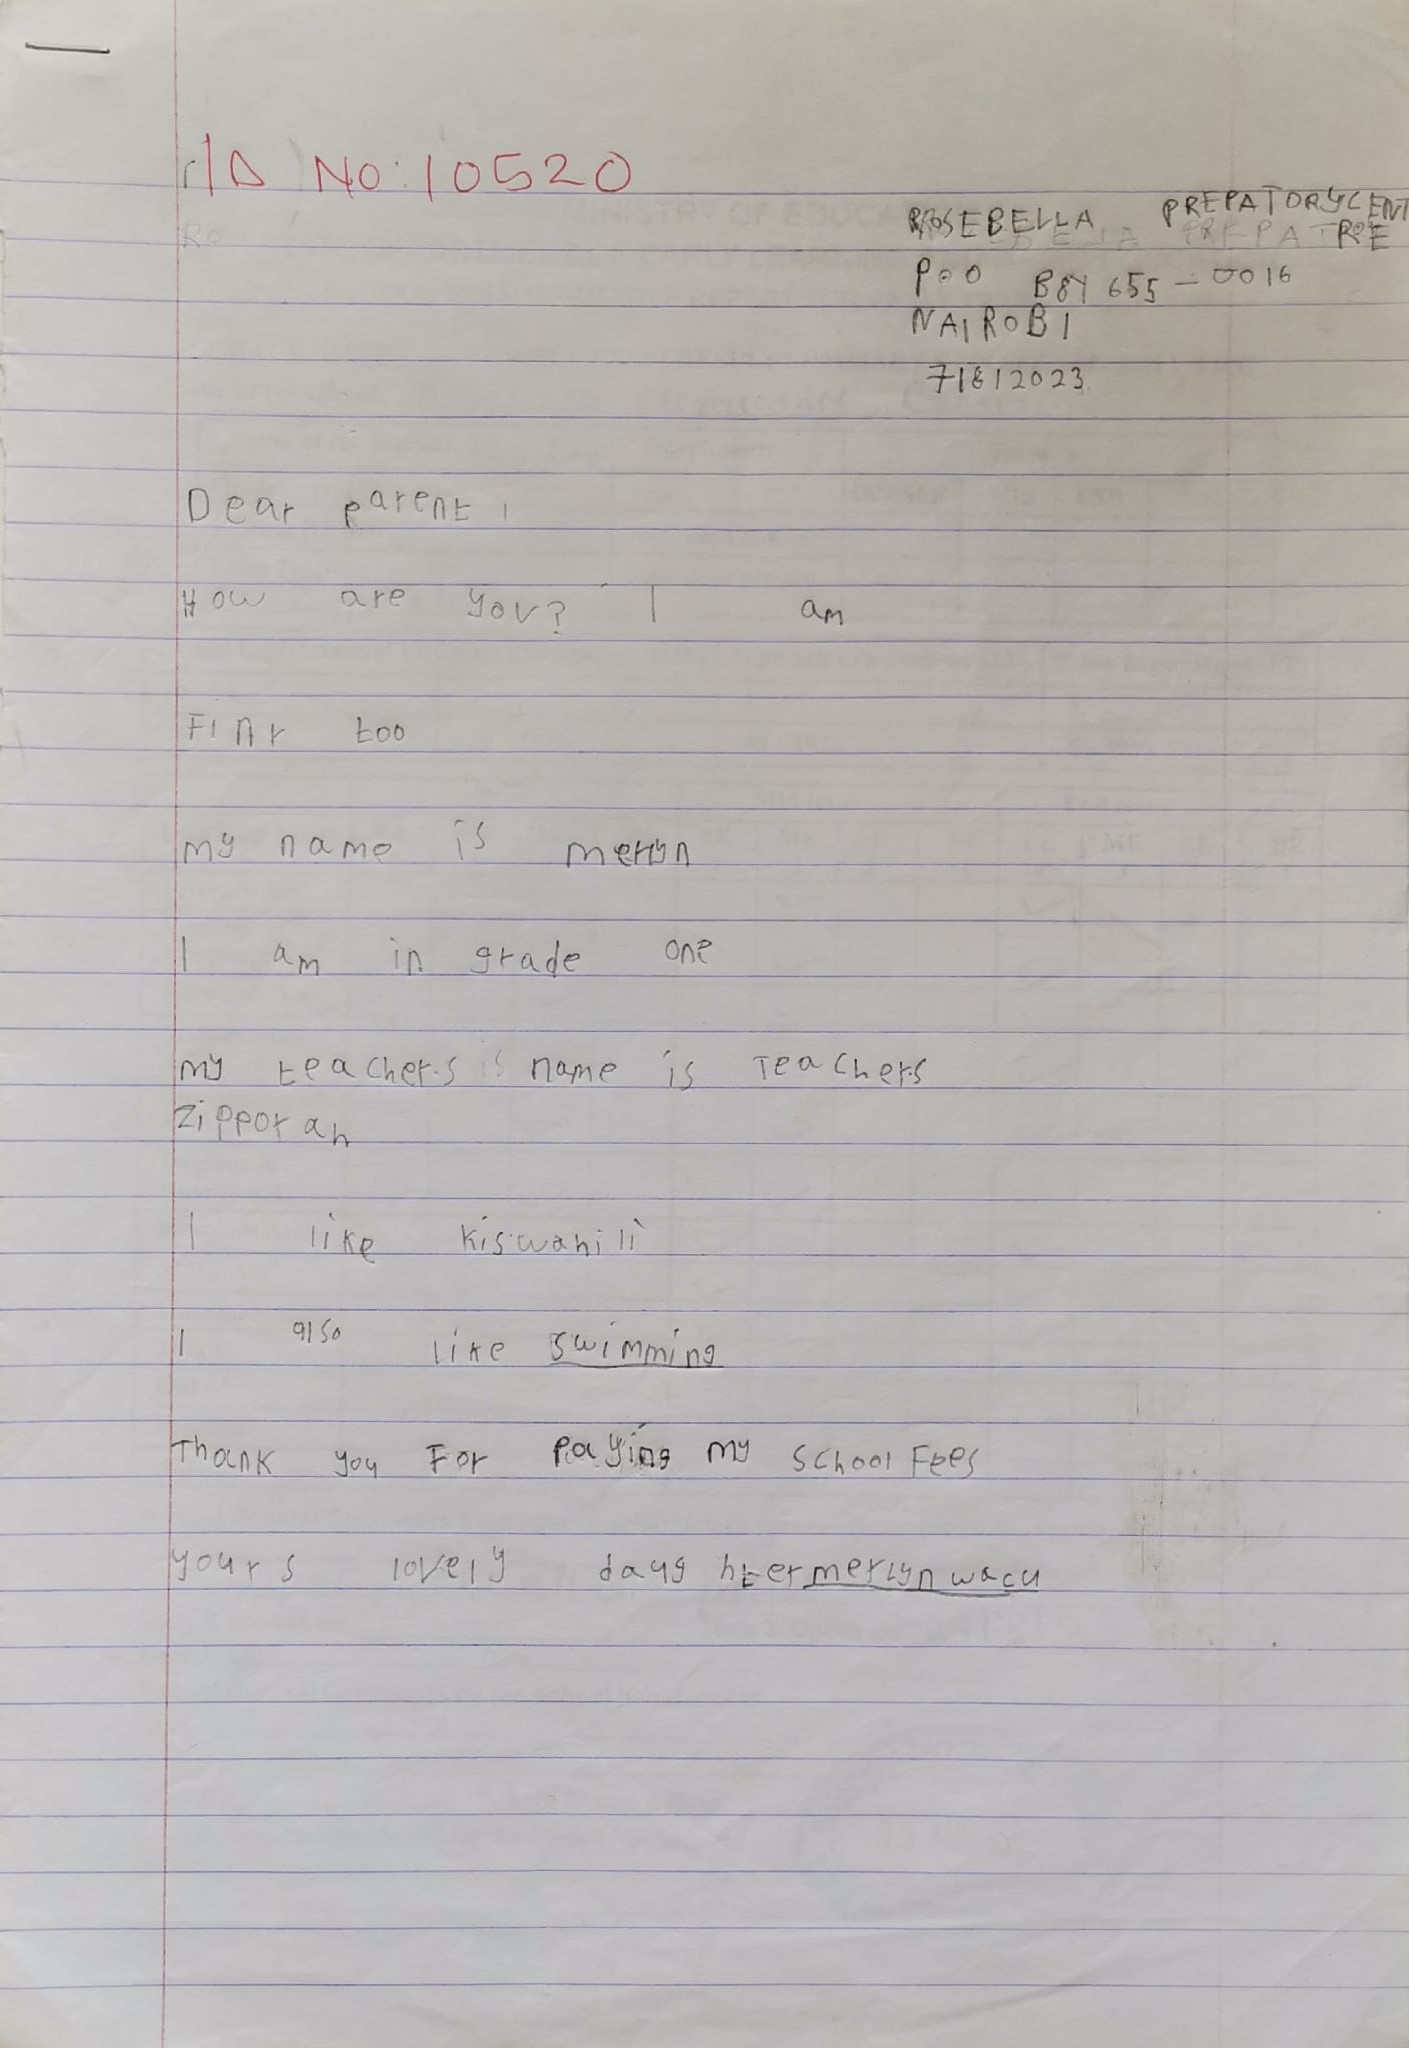 I/D NO: 10520
ROSEBELLA PREPATORYCENT
RE
P o O B8Y 655 - 0016
NAIROBI
7/8/2023
Dear parent,
How are you? I am
Finr too
my name is merlyn
I am in grade one
my teacher.s name is Teachers
Zipporah
I like kiswahili
I also like swimming
Thank you For Paying my School Fees
yours lovely daughter merlyn wacu